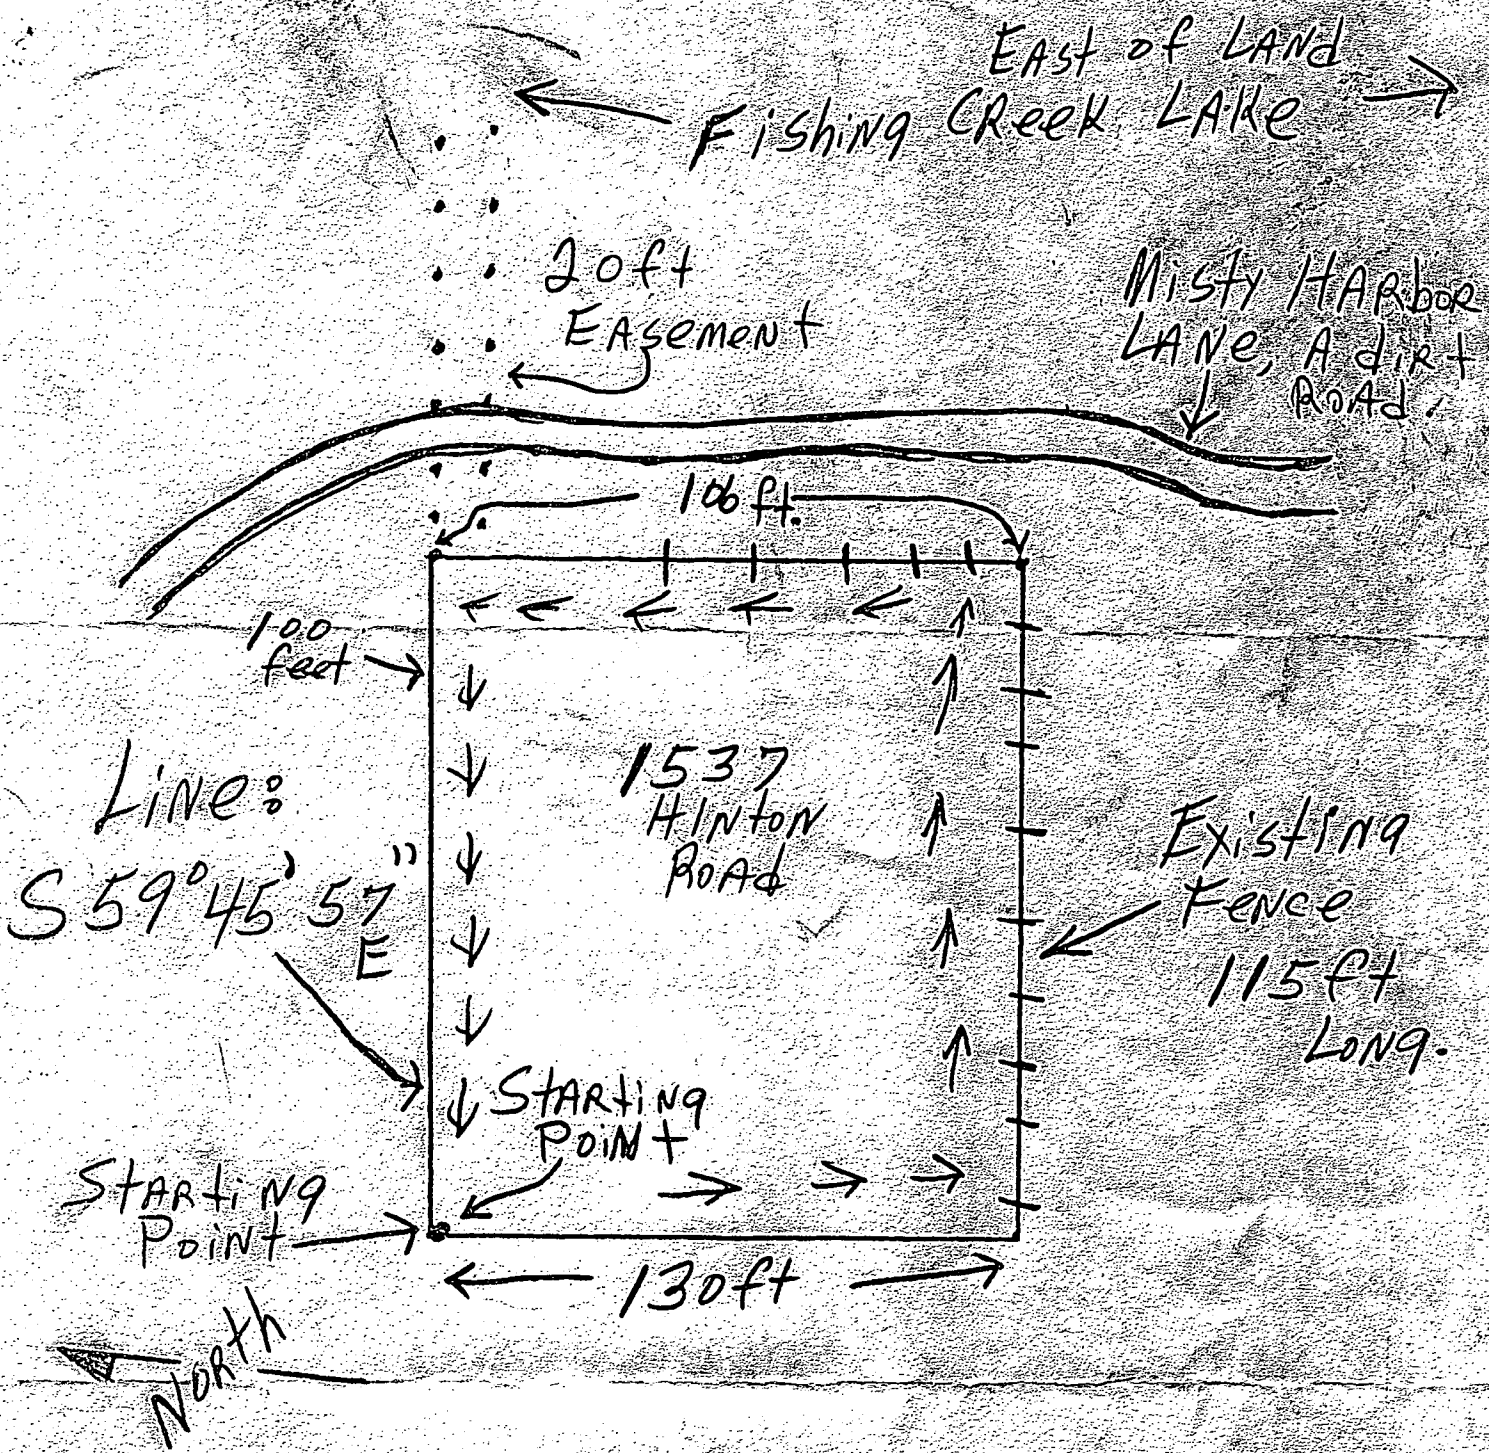 EAST of LANd
Fishing CReeK LAKe
20ft
EASemeNt
Misty HARboR
LANe, A diRt
ROAd.
106 ft.
100
feet
1537
HINtoN
ROAd
LiNe:
S 59° 45' 57"
E
ExistiNg
FeNce
115 ft
LoNg.
StARtiNg
PoiNt
StARtiNg
PoiNt
130ft
NoRth